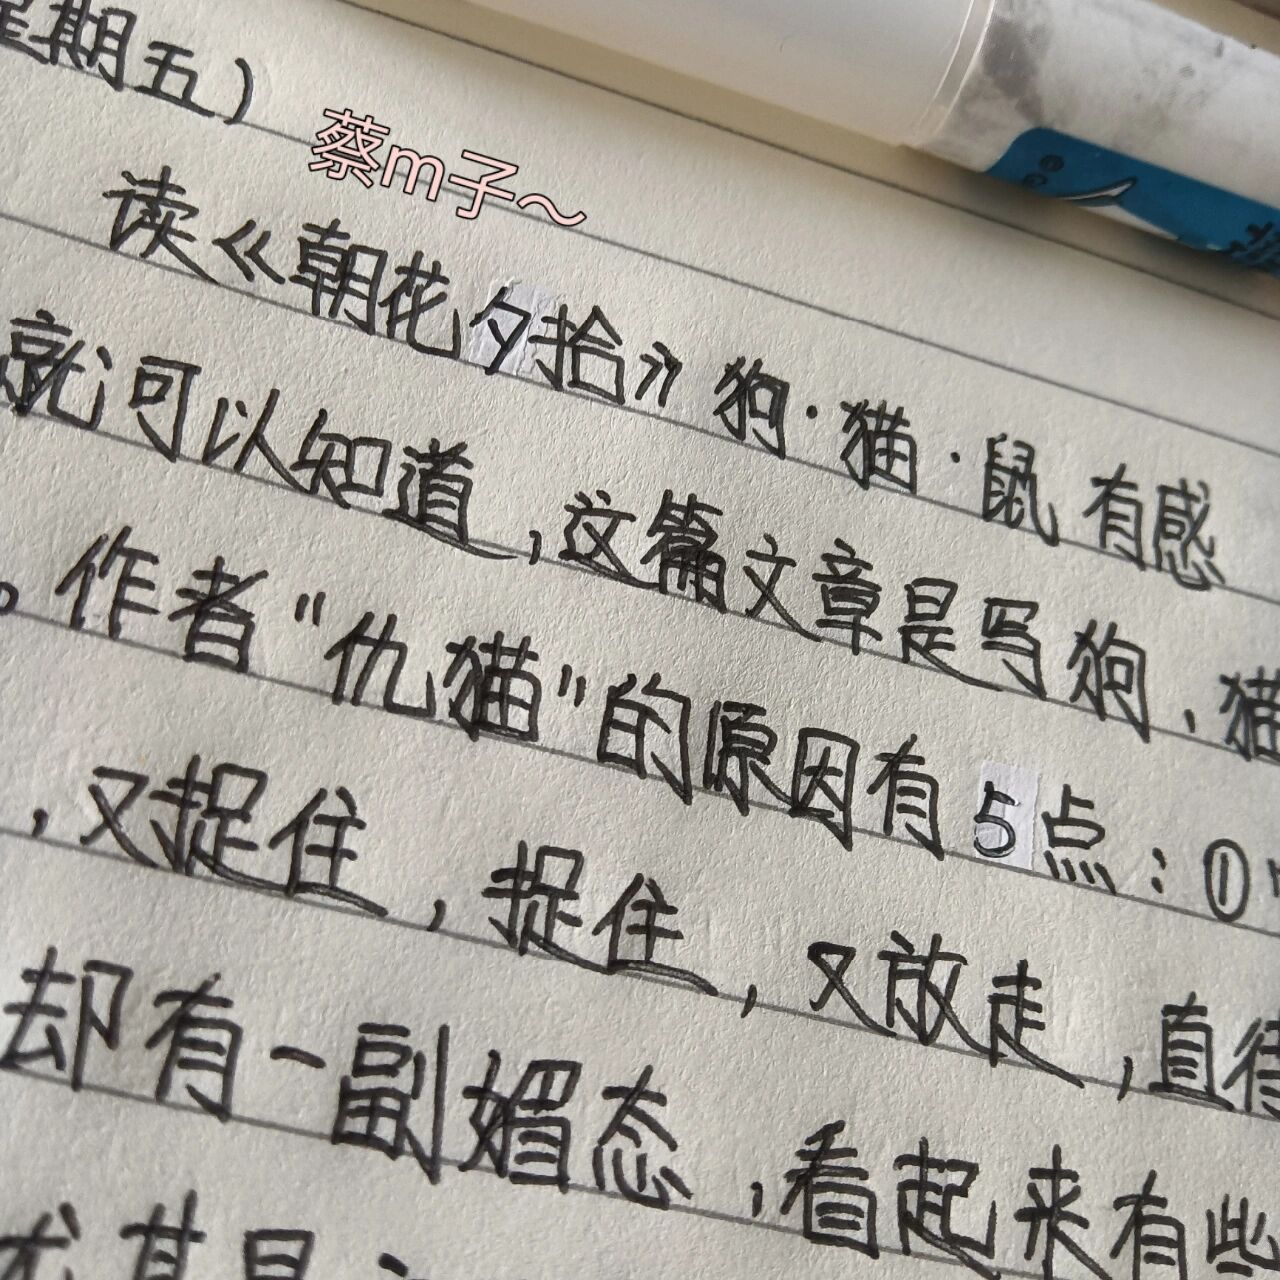 星期五）
蔡m子～
读《朝花夕拾》狗·猫·鼠有感
就可以知道，这篇文章是写狗、猫
。作者“仇猫”的原因有5点：①
，又捉住，捉住，又放走，直待
却有一副媚态，看起来有些